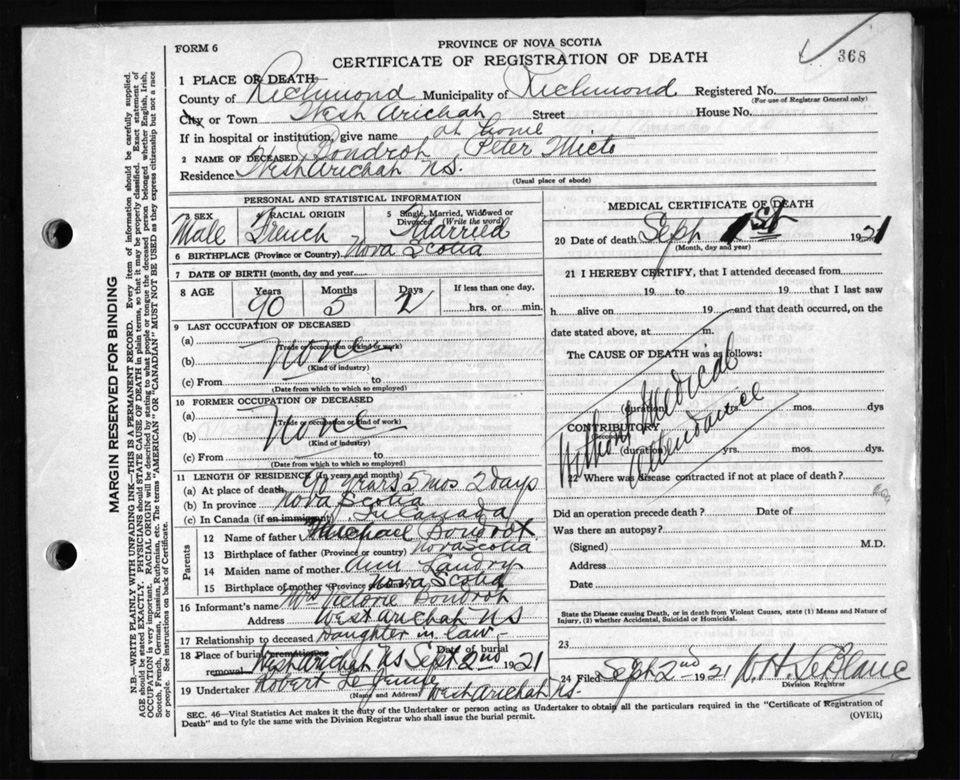 FORM 6
PROVINCE OF NOVA SCOTIA
CERTIFICATE OF REGISTRATION OF DEATH
368
1 PLACE OF DEATH
County of Richmond Municipality of Richmond Registered No.
(For use of Registrar General only)
City or Town West Arichat Street House No.
If in hospital or institution, give name at home
2 NAME OF DECEASED Bondrot Peter
Residence West Arichat N.S.
(Usual place of abode)
PERSONAL AND STATISTICAL INFORMATION
3 SEX Male
RACIAL ORIGIN French
5 Single, Married, Widowed or Divorced (Write the word) Married
6 BIRTHPLACE (Province or Country) Nova Scotia
7 DATE OF BIRTH (month, day and year)
8 AGE Years Months Days If less than one day,
90 5 2 hrs. or min.
9 LAST OCCUPATION OF DECEASED
(a)
(Trade or occupation or kind of work)
(b) None
(Kind of industry)
(c) From to
(Date from which to which so employed)
10 FORMER OCCUPATION OF DECEASED
(a)
(Trade or occupation or kind of work)
(b) None
(Kind of industry)
(c) From to
(Date from which to which so employed)
11 LENGTH OF RESIDENCE (in years and months)
(a) At place of death 90 years 5 mos 2 days
(b) In province Nova Scotia
(c) In Canada (if an immigrant) In Canada
Parents
12 Name of father Michael Bondrot
13 Birthplace of father (Province or country) Nova Scotia
14 Maiden name of mother Ann Landry
15 Birthplace of mother (Province or country) Nova Scotia
16 Informant's name Mrs Bondrot
Address West Arichat N S
17 Relationship to deceased Daughter in law
18 Place of burial cremation or removal West Arichat N S Date of burial Sept 2nd 1921
19 Undertaker Robert West Arichat N.S.
(Name and Address)
MEDICAL CERTIFICATE OF DEATH
20 Date of death Sept 1st 1921
(Month, day and year)
21 I HEREBY CERTIFY, that I attended deceased from
19 to 19 that I last saw
h alive on 19 and that death occurred, on the
date stated above, at m.
The CAUSE OF DEATH was as follows:
Without Medical
Attendance
(duration) yrs. mos. dys
CONTRIBUTORY
(Secondary)
(duration) yrs. mos. dys
22 Where was disease contracted if not at place of death?
Did an operation precede death? Date of
Was there an autopsy?
(Signed) M.D.
Address
Date
State the Disease causing Death, or in death from Violent Causes, state (1) Means and Nature of
Injury, (2) whether Accidental, Suicidal or Homicidal.
23
24 Filed Sept 2nd 1921 LeBlanc
Division Registrar
SEC. 46—Vital Statistics Act makes it the duty of the Undertaker or person acting as Undertaker to obtain all the particulars required in the "Certificate of Registration of
Death" and to fyle the same with the Division Registrar who shall issue the burial permit. (OVER)
MARGIN RESERVED FOR BINDING
N.B.—WRITE PLAINLY WITH UNFADING INK—THIS IS A PERMANENT RECORD. Every item of information should be carefully supplied.
AGE should be stated EXACTLY. PHYSICIANS should STATE CAUSE OF DEATH in plain terms, so that it may be properly classified. Exact statement of
OCCUPATION is very important. RACIAL ORIGIN will be described by stating to what people or tongue the deceased person belonged whether English, Irish,
Scotch, French, German, Russian, Ruthenian, etc. The terms "AMERICAN" OR "CANADIAN" MUST NOT BE USED as they express citizenship but not a race
or people. See instructions on back of Certificate.